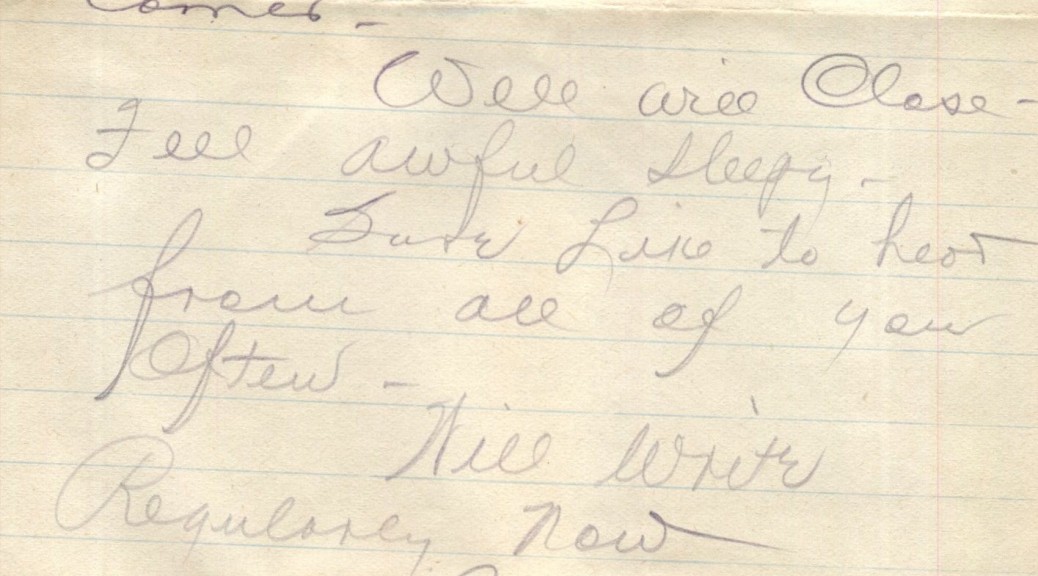 Well will Close -
Feel awful sleepy -
Sure Like to hear
from all of you
Often -
Will Write
Regularly Now